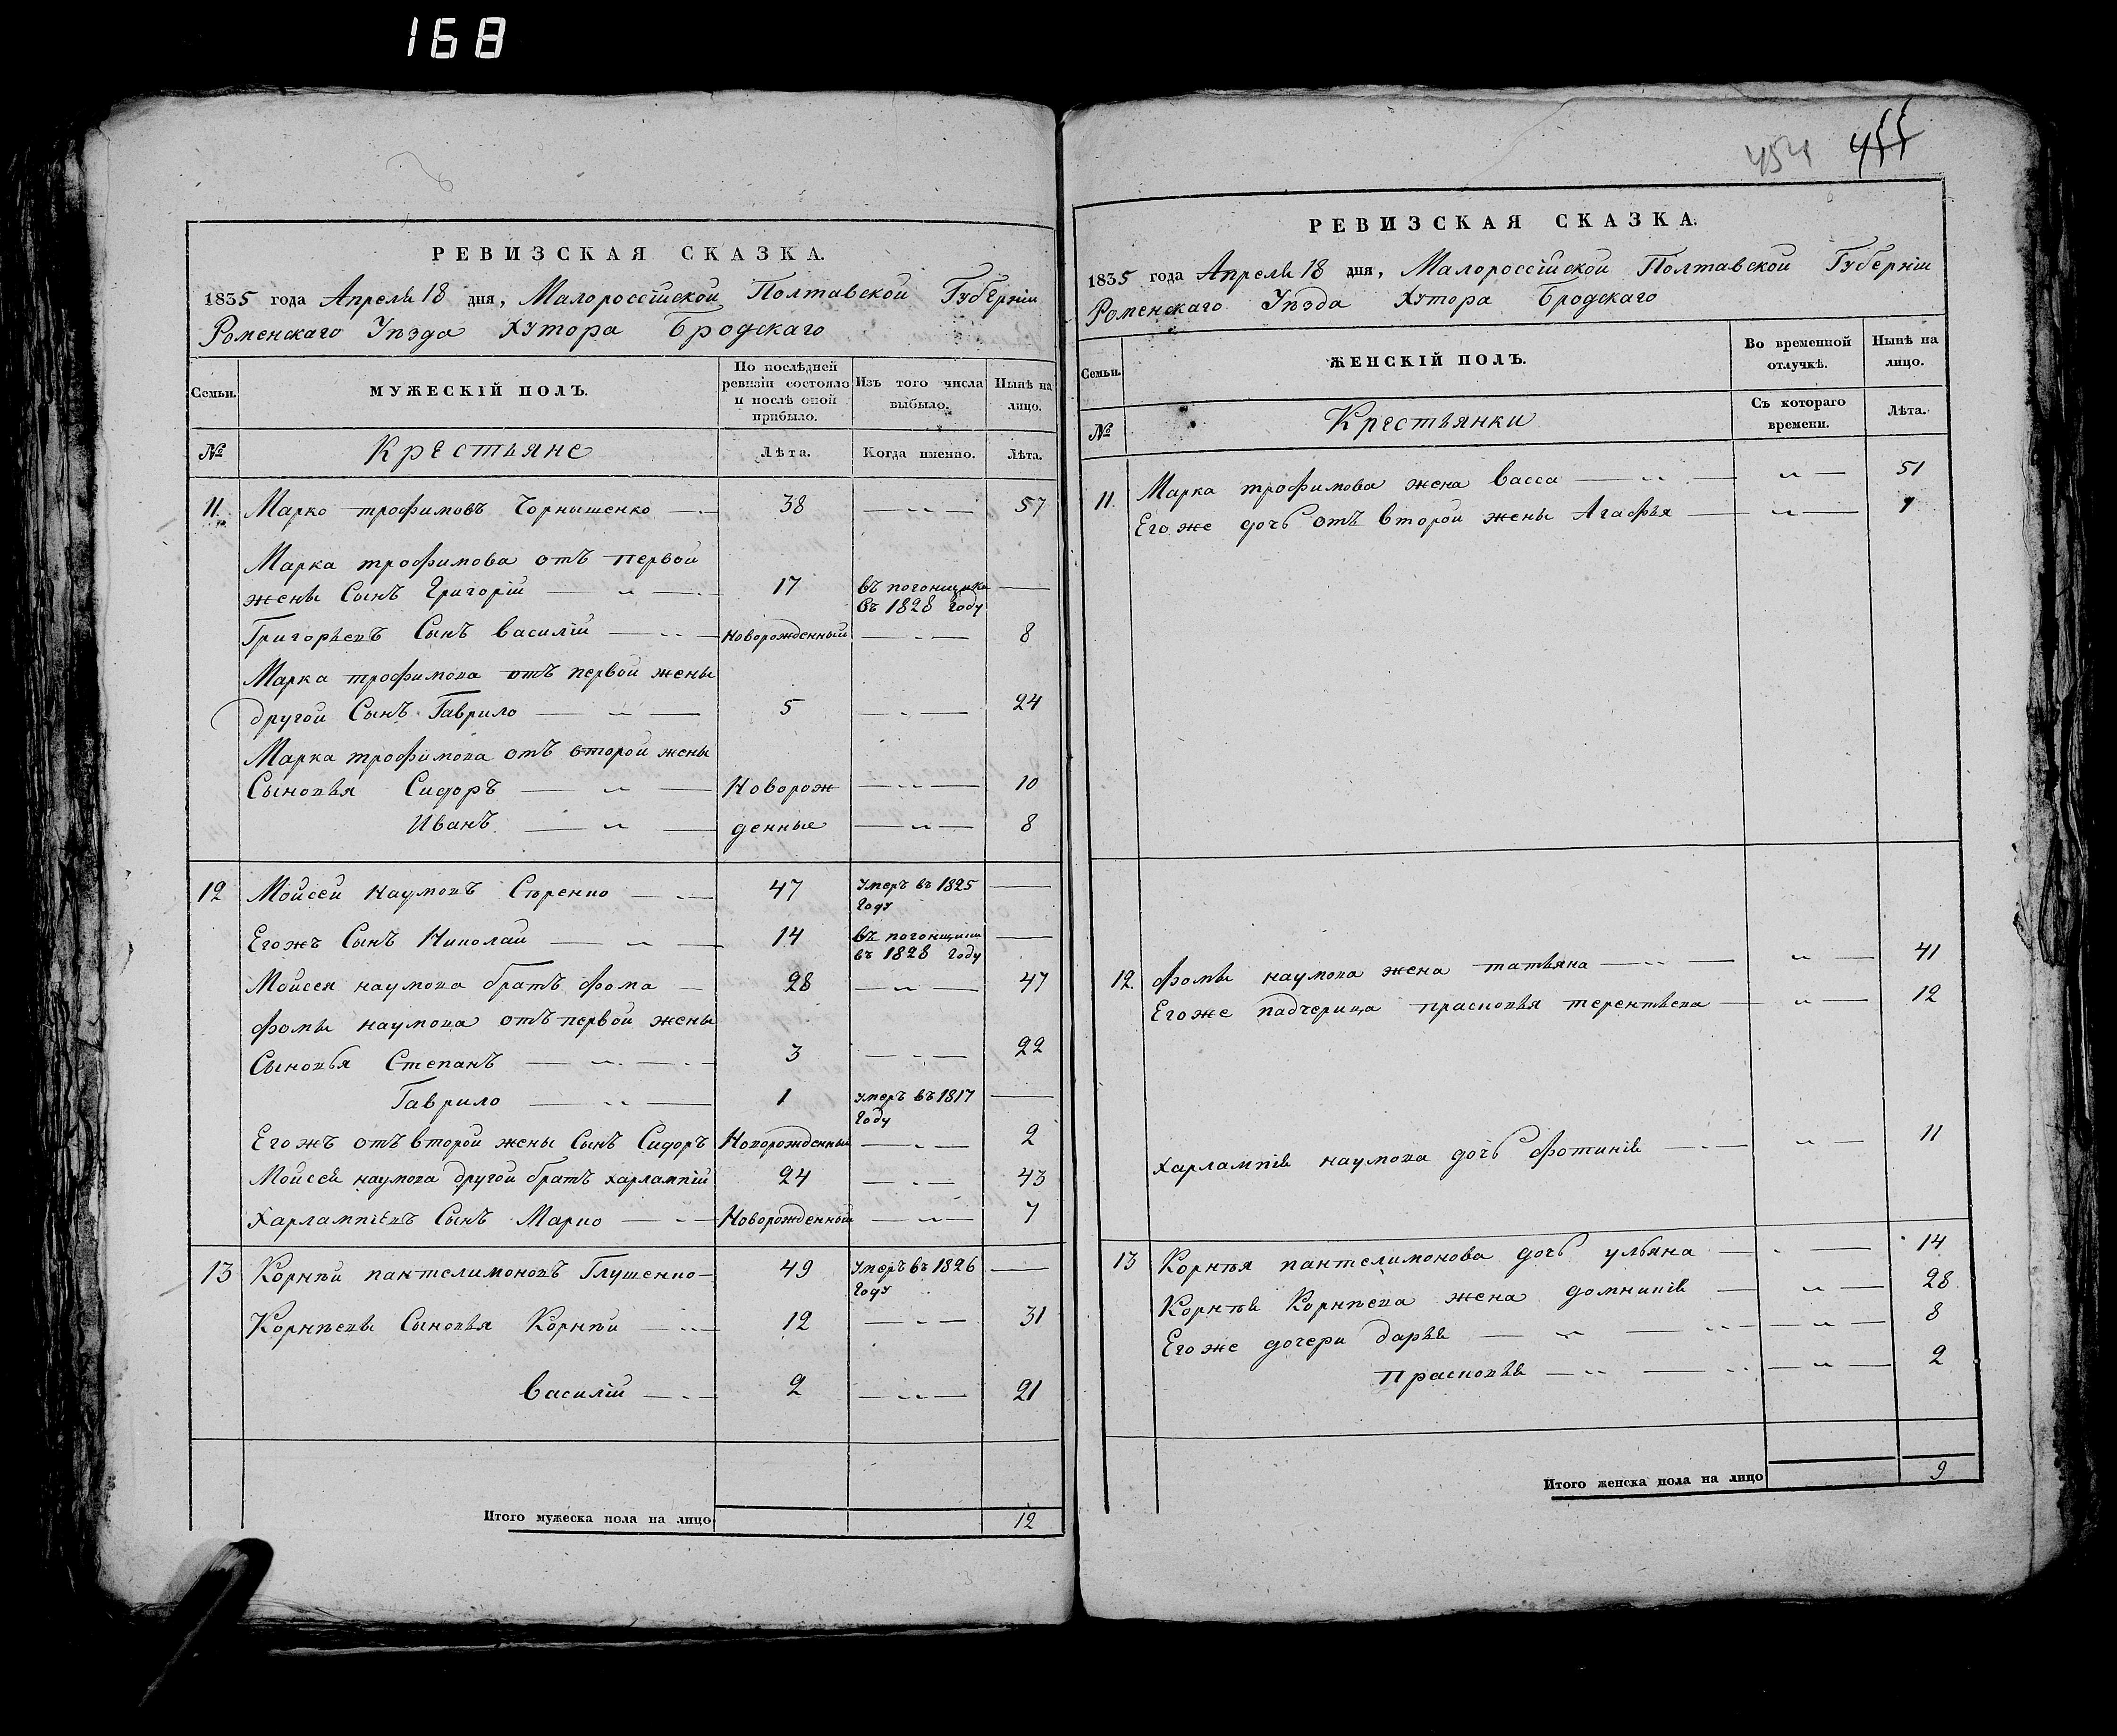 168
РЕВИЗСКАЯ СКАЗКА.
1835 года Апреля 18 дня, Малороссійской Полтавской Губерніи
Роменскаго Уѣзда Хутора Бродскаго
Семьи.
МУЖЕСКІЙ ПОЛЪ.
По послѣдней ревизіи состояло и послѣ оной прибыло.
Изъ того числа выбыло.
Нынѣ на лицо.
№ Крестьяне Лѣта. Когда именно. Лѣта.
11. Марко трофимовъ Чорнышенко 38 57
Марка трофимова отъ первой
жены Сынъ Григорій 17 въ погонщики въ 1828 году
Григорьевъ Сынъ василій новорожденный 8
Марка трофимова отъ первой жены
другой Сынъ Гаврило 5 24
Марка трофимова отъ второй жены
Сыновья Сидоръ Новорож 10
Иванъ денные 8
12 Мойсей Наумовъ Сѣренко 47 умеръ въ 1825 году
Егожъ Сынъ Николай 14 въ погонщики въ 1828 году
Мойсея наумова братъ фома 28 47
фомы наумова отъ первой жены
Сыновья Степанъ 3 22
Гаврило 1 умеръ въ 1817 году
Егожъ отъ второй жены Сынъ Сидоръ Новорожденный 2
Мойсея наумова другой братъ харлампій 24 43
Харлампіевъ Сынъ Марко Новорожденный 7
13 Корнѣй пантелимоновъ Глущенко 49 умеръ въ 1826 году
Корнѣевы Сыновья Корнѣй 12 31
василій 2 21
Итого мужеска пола на лицо 12
454 455
РЕВИЗСКАЯ СКАЗКА.
1835 года Апреля 18 дня, Малороссійской Полтавской Губерніи
Роменскаго Уѣзда Хутора Бродскаго
Семьи.
ЖЕНСКІЙ ПОЛЪ.
Во временной отлучкѣ.
Нынѣ на лицо.
№ Крестьянки Съ котораго времени. Лѣта.
11. Марка трофимова жена васса 51
Егоже дочь отъ второй жены Агафья 7
12. фомы наумова жена татьяна 41
Егоже падчерица прасковья терентьева 12
Харлампія наумова дочь фотинія 11
13 Корнѣя пантелимонова дочь ульяна 14
Корнѣя Корнѣева жена домникія 28
Егоже дочери дарья 8
прасковья 2
Итого женска пола на лицо 9